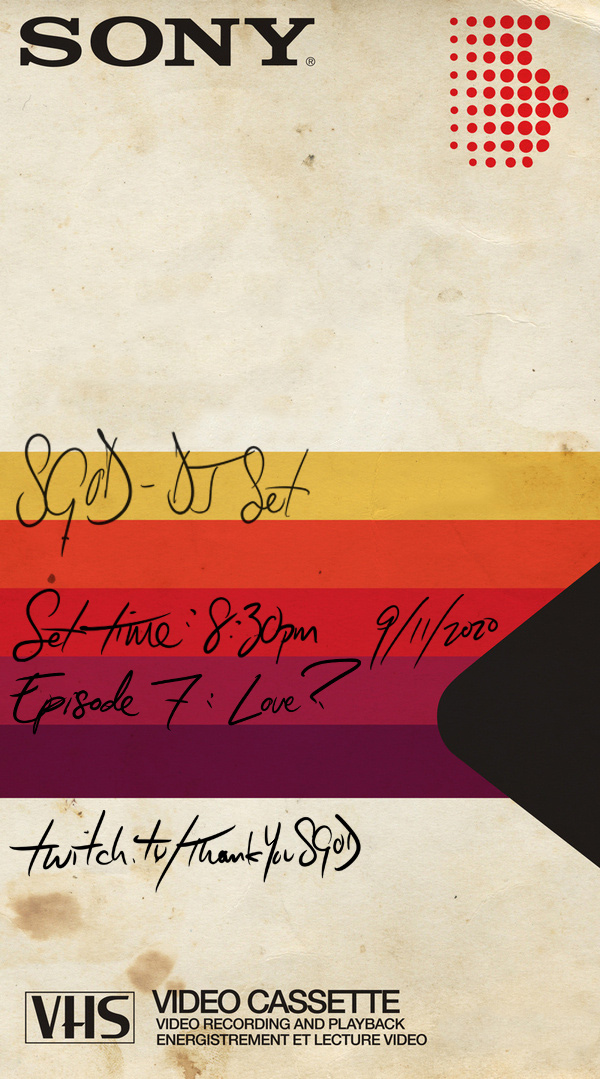 SONY®
SGOD - DJ Set
Set time: 8:30pm 9/11/2020
Episode 7: Love?
twitch.tv/ThankYouSGOD
VHS VIDEO CASSETTE
VIDEO RECORDING AND PLAYBACK
ENERGISTREMENT ET LECTURE VIDEO